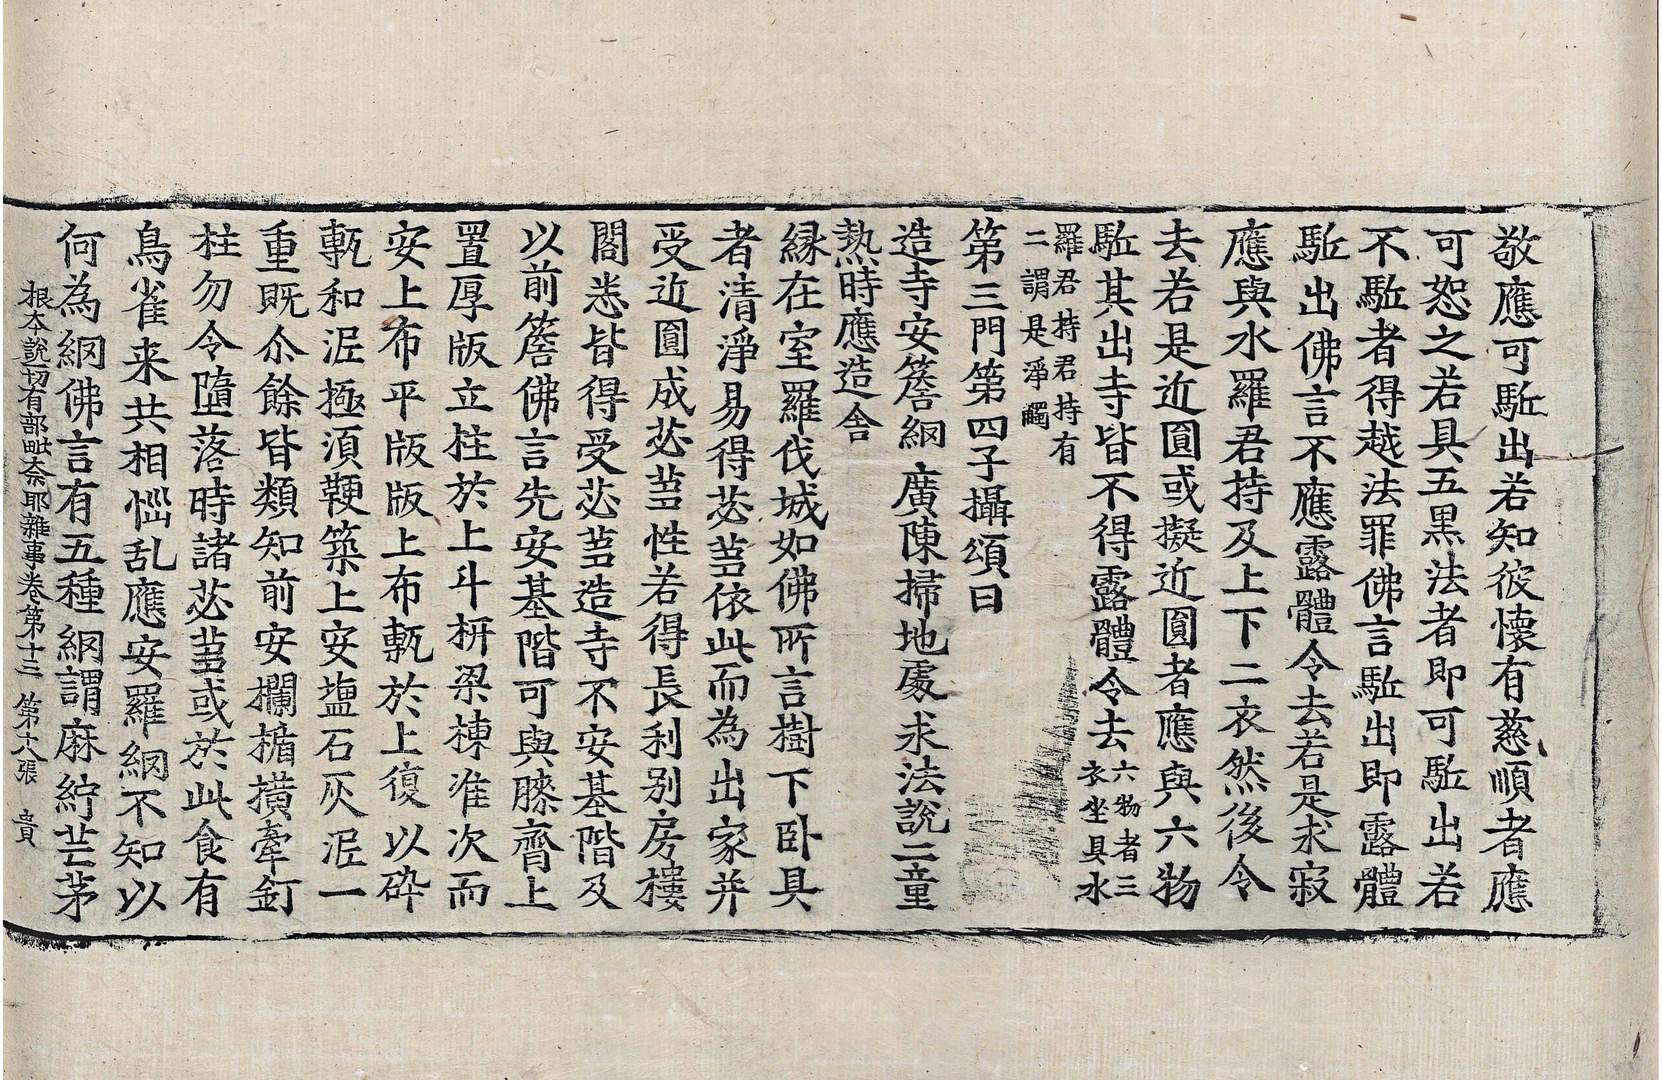 敬應可駈出若知彼懷有慈順者應
可恕之若具五黒法者即可駈出若
不駈者得越法罪佛言駈出即露體
駈出佛言不應露體令去若是求寂
應與水羅君持及上下二衣然後令
去若是近圓或擬近圓者應與六物
駈其出寺皆不得露體令去六物者三衣坐具水
羅君持君持有二謂是淨觸
第三門第四子攝頌曰
造寺安簷網 廣陳掃地處求法說二童
熱時應造舍
縁在室羅伐城如佛所言樹下卧具
者清淨易得苾芻依此而為出家并
受近圓成苾芻性若得長利别房樓
閣悉皆得受苾芻造寺不安基階及
以前簷佛言先安基階可與膝齊上
置厚版立柱於上斗枅梁棟准次而
安上布平版版上布㼾於上復以碎
㼾和泥極須鞕築上安塩石灰泥一
重既尒餘皆類知前安欄楯横牽釘
柱勿令墮落時諸苾芻或於此食有
鳥雀来共相惱乱應安羅網不知以
何為網佛言有五種網謂麻紵芒茅
根本說一切有部毗奈耶雜事卷第十三 第十八張 貴